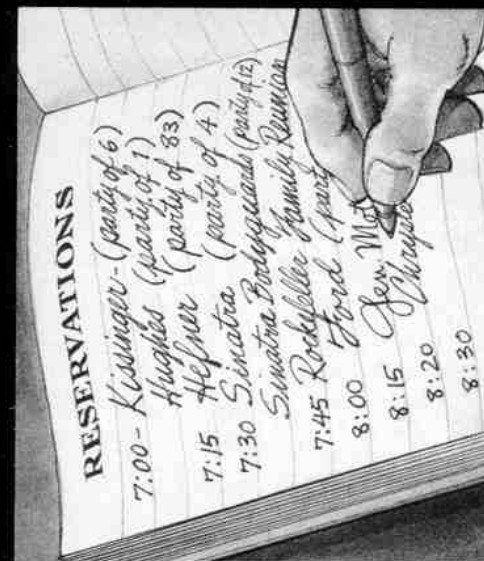 RESERVATIONS
7:00 - Kissinger - (party of 6)
Hughes (party of 1)
7:15 Hefner (party of 83)
7:30 Sinatra (party of 4)
Sinatra Bodyguards (party of 12)
7:45 Rockefeller Family Reunion
8:00 Ford (part
8:15 Gen Mot
8:20 Chrysle
8:30